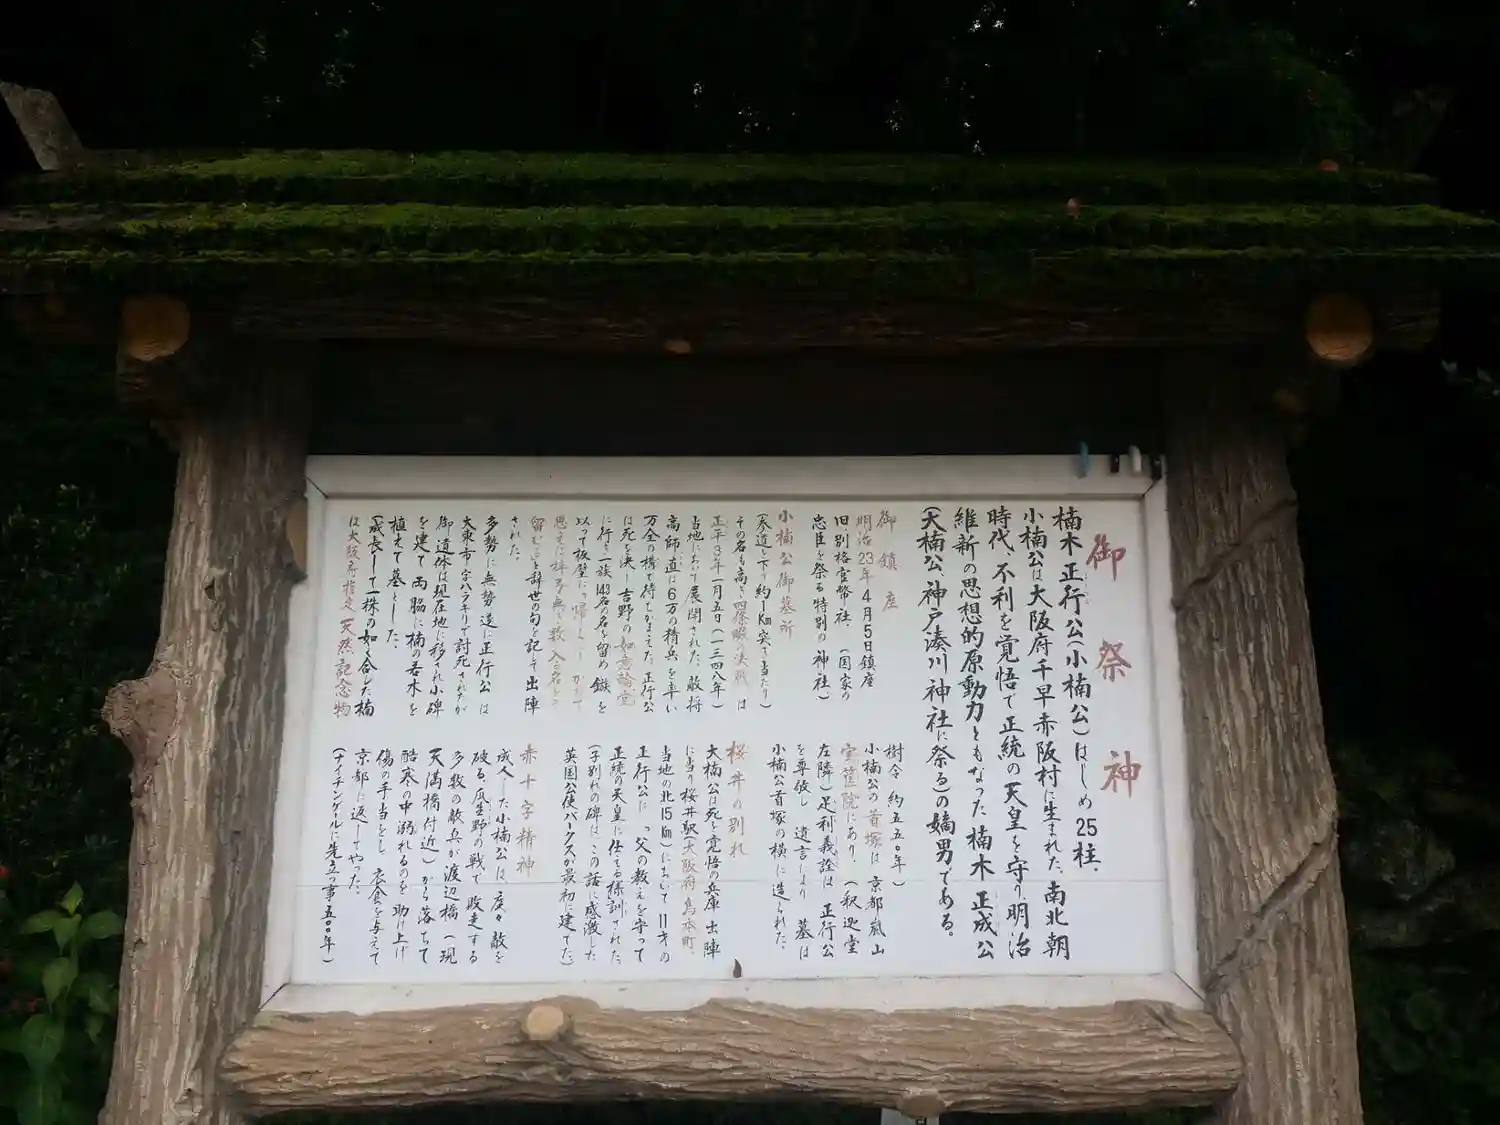 御祭神
楠木正行公(小楠公)はじめ25柱、
小楠公は大阪府千早赤阪村に生まれた、南北朝
時代、不利を覚悟で正統の天皇を守り、明治
維新の思想的原動力ともなった楠木正成公
(大楠公、神戸湊川神社に祭る)の嫡男である。
御鎮座
明治23年4月5日鎮座
旧、別格官幣社、(国家の
忠臣を祭る特別の神社)
小楠公御墓所
(参道を下り約1Km突き当たり)
その名も高き、四條畷の決戦は
正平3年一月五日(一三四八年)
当地において展開された、敵将
高師直は6万の精兵を率い
万全の構で待ちかまえた、正行公
は死を決し吉野の如意輪堂
に行き一族143名の名を留め鏃を
以って板壁に「帰らじとかねて
思えば梓弓無き数に入る名をぞ
留むる」と辞世の句を記して出陣
された、
多勢に無勢遂に正行公は
大東市字ハラキリで討死されたが
御遺体は現在地に移され小碑
を建て両脇に楠の若木を
植えて墓とした、
(成長して一株の如く合した楠
は大阪府指定天然記念物
樹令約五五〇年)
小楠公の首塚は京都嵐山
宝筐院にあり、(釈迦堂
左隣)足利義詮は正行公
を尊敬し遺言により墓は
小楠公首塚の横に造られた、
桜井の別れ
大楠公は死を覚悟の兵庫出陣
に当り桜井駅(大阪府島本町、
当地の北15Km)において11才の
正行公に「父の教えを守って
正統の天皇に仕える様訓された
(子別れの碑は、この話に感激した
英国公使パークスが最初に建てた)
赤十字精神
成人した小楠公は、度々敵を
破る、瓜生野の戦で敗走する
多数の敵兵が渡辺橋(現
天満橋付近)から落ちて
酷寒の中溺れるのを助け上げ
傷の手当をし、衣食を与えて
京都に返してやった、
(ナイチンゲールに先立つ事五〇〇年)